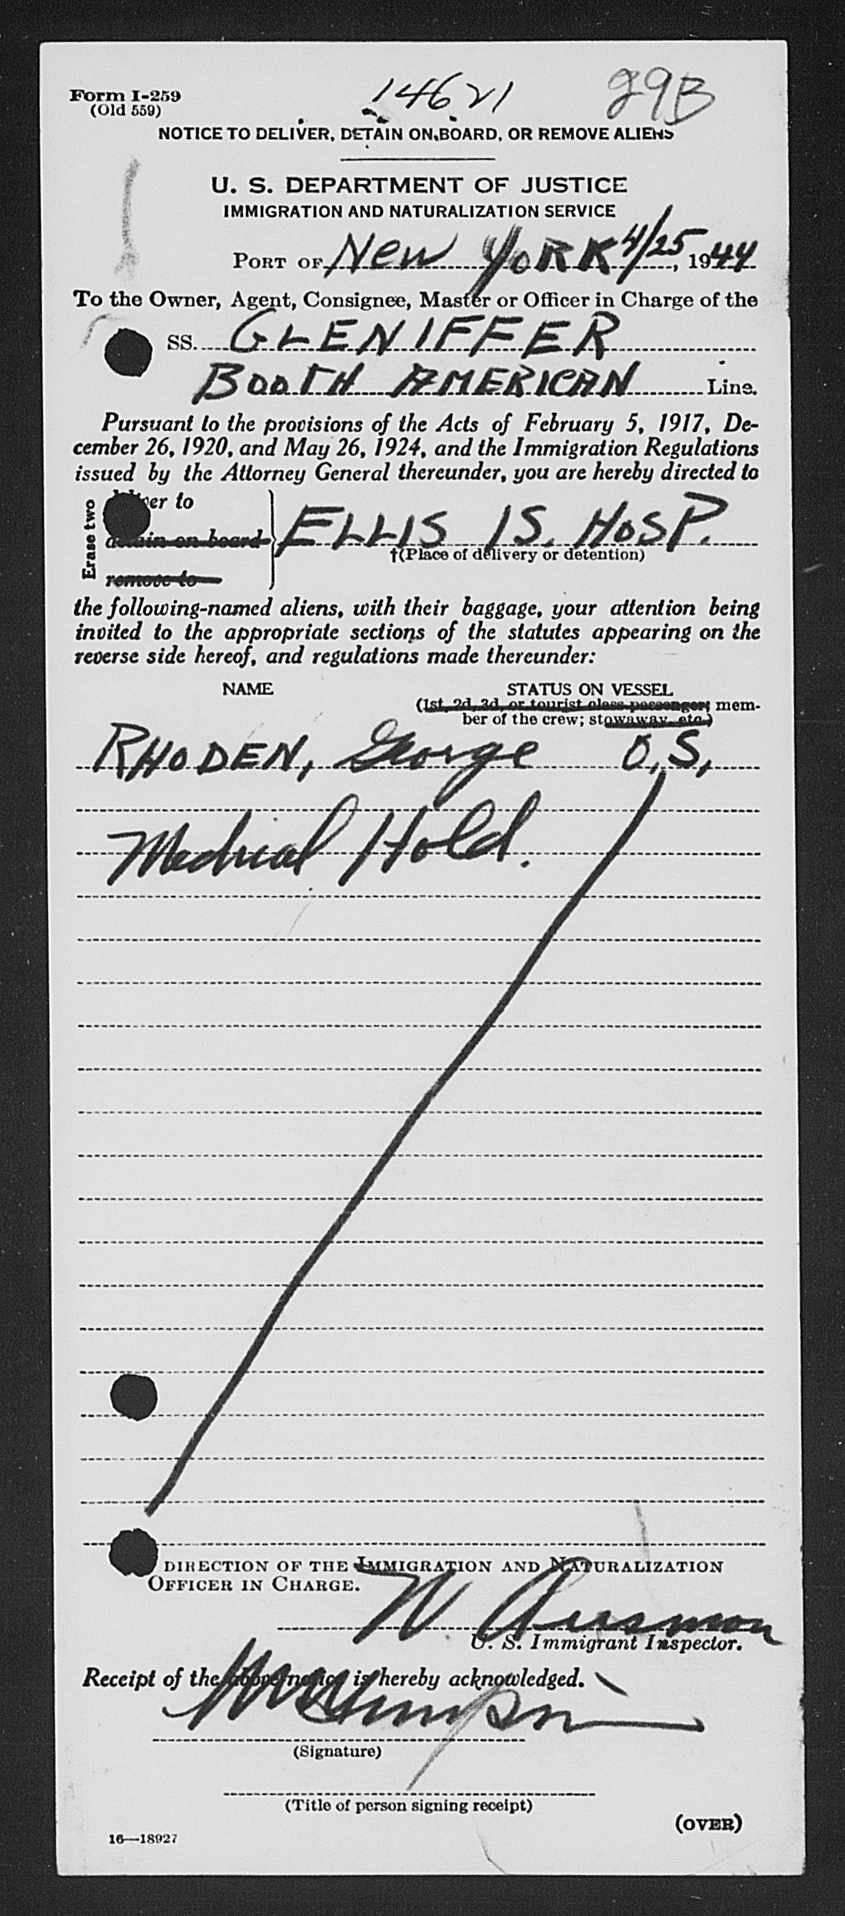 Form I-259
(Old 559)
14621
29B
NOTICE TO DELIVER, DETAIN ON BOARD, OR REMOVE ALIENS
U. S. DEPARTMENT OF JUSTICE
IMMIGRATION AND NATURALIZATION SERVICE
PORT OF New YORK 4/25, 1944
To the Owner, Agent, Consignee, Master or Officer in Charge of the
SS. GLENIFFER
BOOTH AMERICAN Line.
Pursuant to the provisions of the Acts of February 5, 1917, De-
cember 26, 1920, and May 26, 1924, and the Immigration Regulations
issued by the Attorney General thereunder, you are hereby directed to
Erase two
deliver to
detain on board
remove to
ELLIS IS. HOSP.
†(Place of delivery or detention)
the following-named aliens, with their baggage, your attention being
invited to the appropriate sections of the statutes appearing on the
reverse side hereof, and regulations made thereunder:
NAME STATUS ON VESSEL
(1st, 2d, 3d, or tourist class passenger; mem-
ber of the crew; stowaway, etc.)
RHODEN, George O.S.
Medical Hold.
DIRECTION OF THE IMMIGRATION AND NATURALIZATION
OFFICER IN CHARGE.
W.
U. S. Immigrant Inspector.
Receipt of the above notice is hereby acknowledged.
(Signature)
(Title of person signing receipt)
(OVER)
16—18927